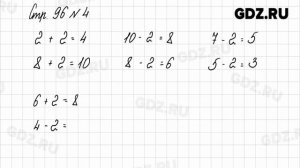 Стр. 96 № 4
GDZ.RU
2 + 2 = 4 10 - 2 = 8 7 - 2 = 5
8 + 2 = 10 8 - 2 = 6 5 - 2 = 3
6 + 2 = 8
4 - 2 =